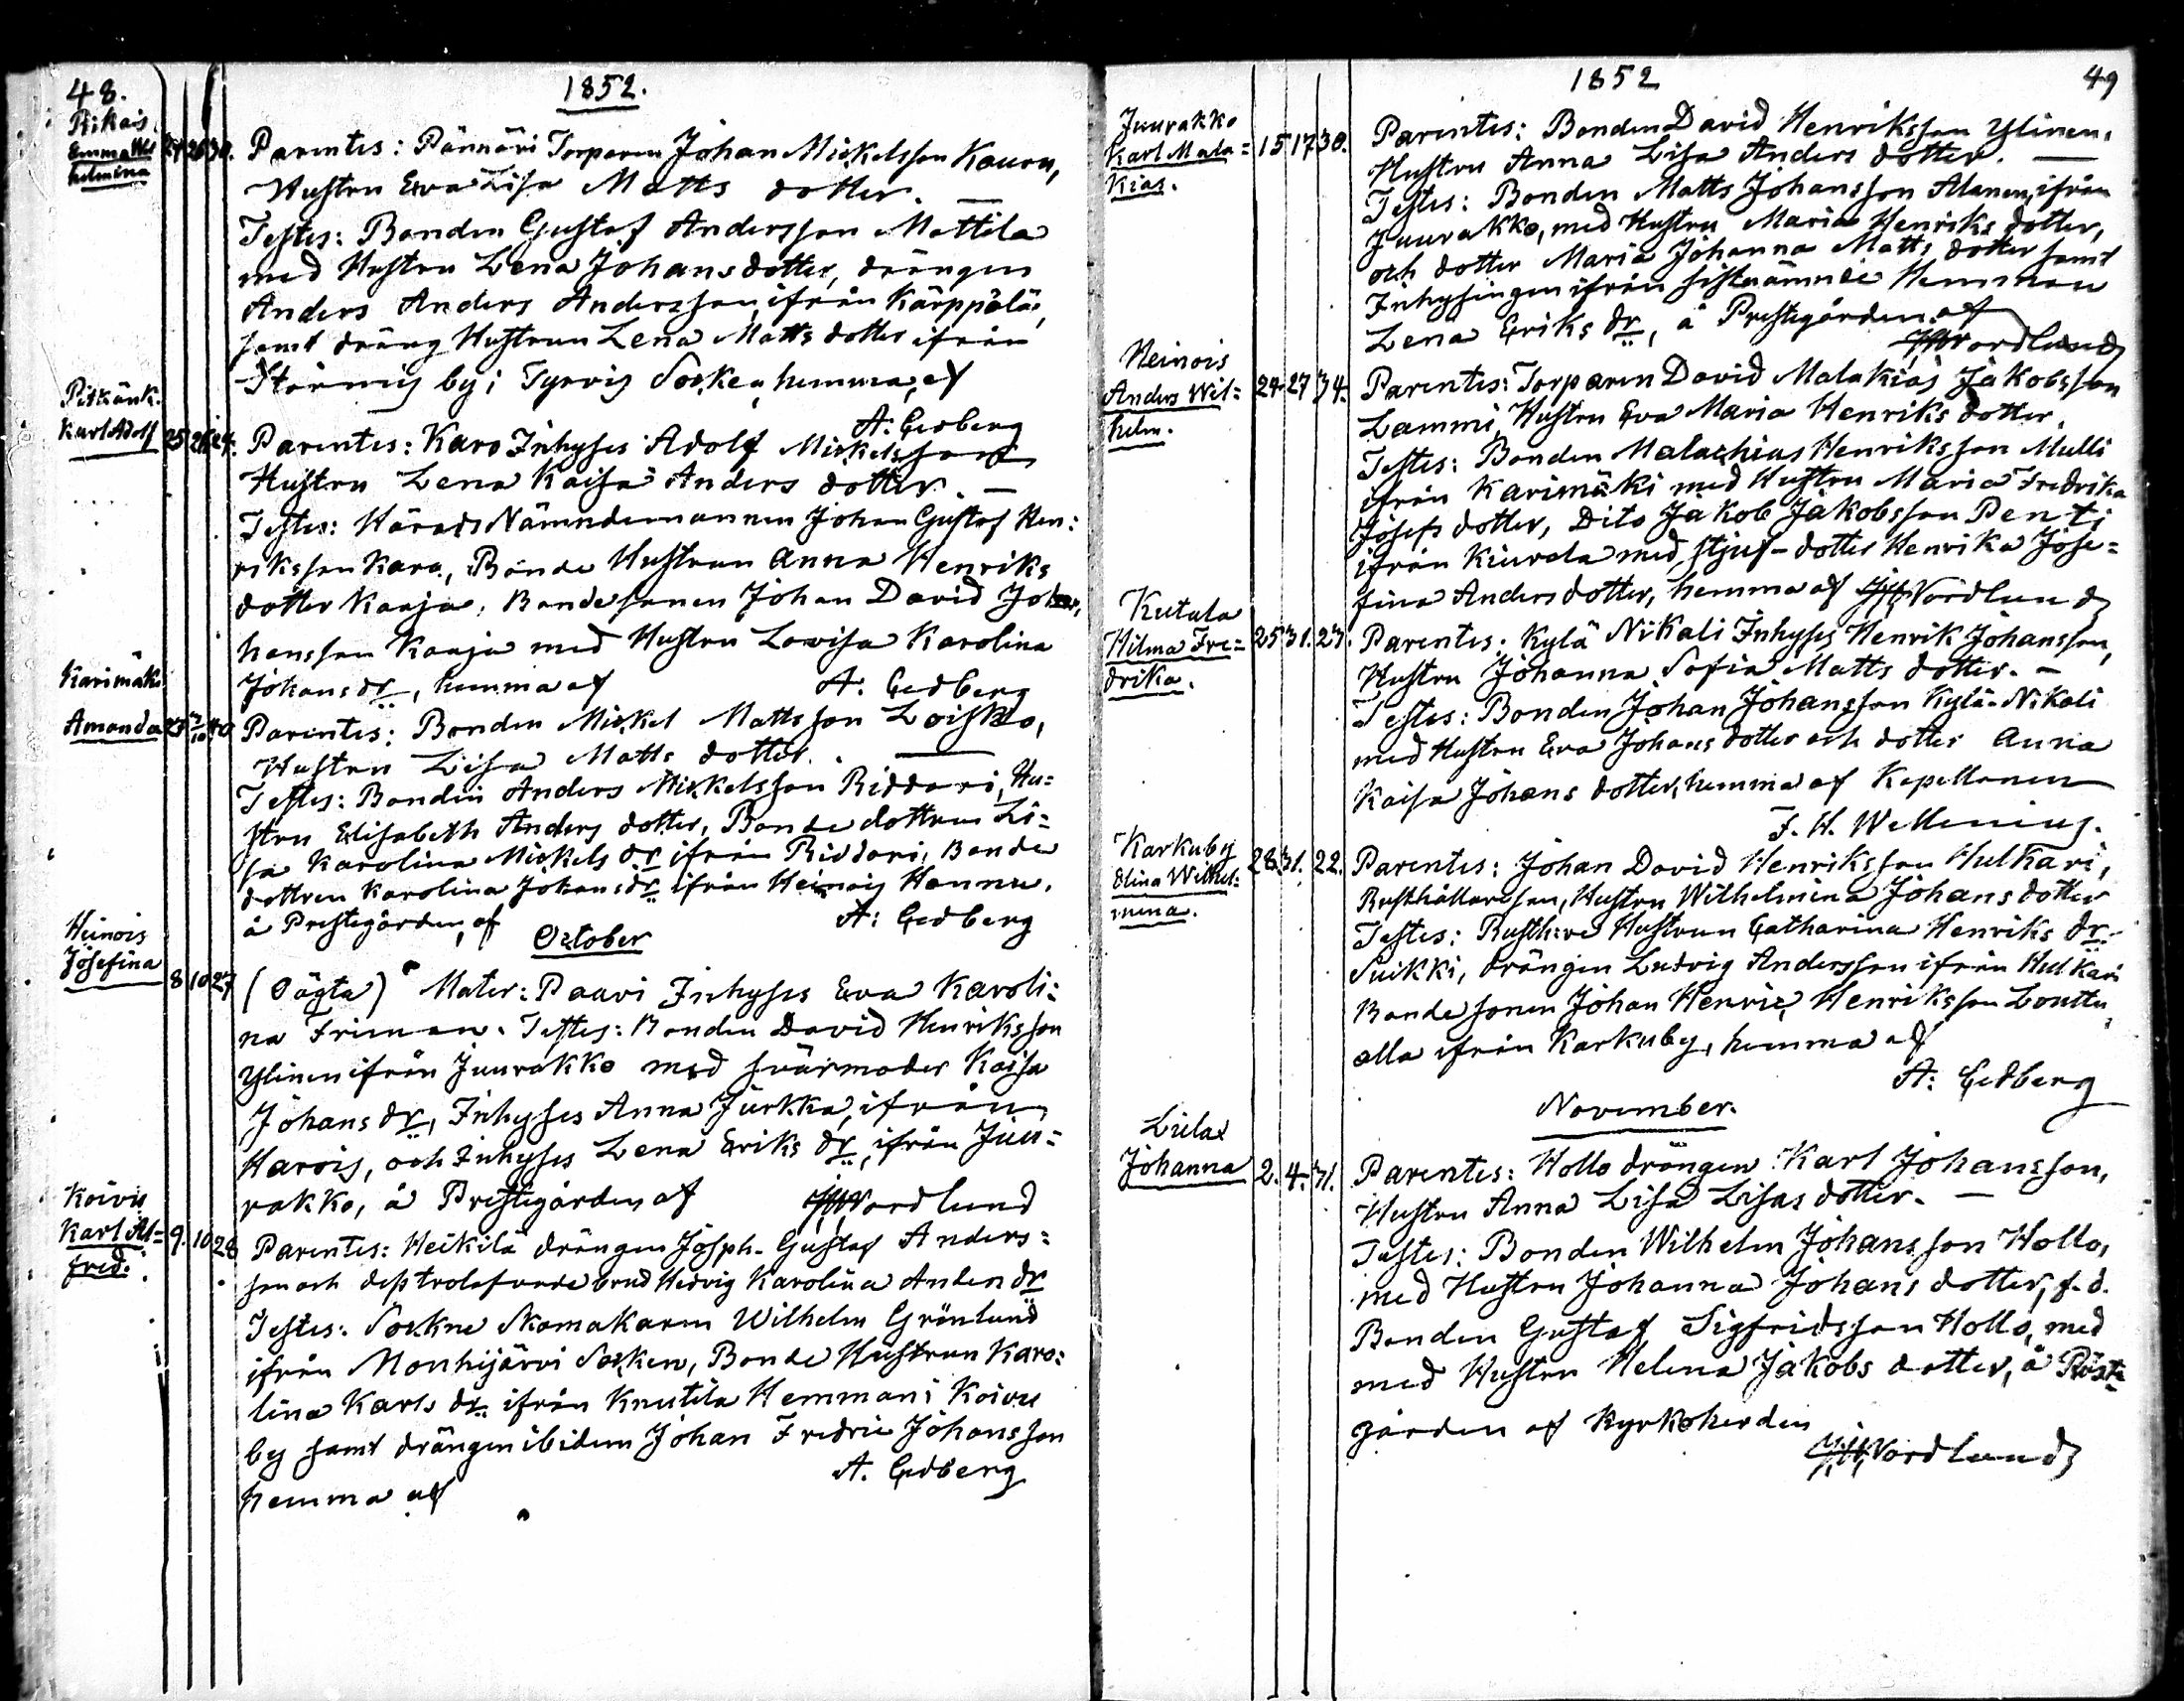 48.
1852.
Rikais
Emma Wil
helmina
24 26 30. Parentes: Pännäri Torparen Johan Mickelsson Kauru,
Hustru Eva Lisa Matts dotter. —
Testes: Bonden Gustaf Andersson Mattila
med Hustru Lena Johansdotter, drängen
Anders Anders Andersson, ifrån Kärppälä,
samt dräng Hustrun Lena Matts dotter ifrån
Stormis by i Tyrvis Socken, hemma, af
A: Gedberg
Pitkänk.
Karl Adolf
25 26 24. Parentes: Karo Inhyses Adolf Mickelsson
Hustru Lena Kaisa Anders dotter. —
Testes: Härads Nämndemannen Johan Gustaf Hen:
riksson Karo, Bonde Hustrun Anna Henriks
dotter Kaaja, Bondesonen Johan David Joh
hansson Kaaja med Hustru Lovisa Karolina
Johans dr, hemma af A. Gedberg
Karimäki
Amanda
27 3/10 40 Parentes: Bonden Mickel Mattsson Loisko,
Hustru Lisa Matts dotter. —
Testes: Bonden Anders Mickelsson Riddari, Hu=
stru Elisabeth Anders dotter, Bonde dottren Li=
sa Karolina Mickels dr ifrån Riddari, Bonde
dottren Karolina Johans dr ifrån Heinois Hannu,
å Prestegården, af A: Gedberg
October
Heinois
Josefina
8 10 27 (Oägta) Mater: Paavi Inhyses Eva Karoli:
na Friman. Testes: Bonden David Henriksson
Ylinen ifrån Juurakko med svärmoder Kaisa
Johans dr, Inhyses Anna Jurkka, ifrån
Harois, och Inhyses Lena Eriks dr, ifrån Juu=
rakko, å Prestegården af Nordlund
Koivu
Karl Al=
fred.
9. 10 28 Parentes: Heikilä drängen Josph. Gustaf Anders=
son och dess trolofvade brud Hedvig Karolina Anders dr
Testes: Sockne Skomakaren Wilhelm Grönlund
ifrån Mouhijärvi Socken, Bonde Hustrun Karo:
lina Karls dr. ifrån Knutila Hemman i Koivu
by samt drängen ibidem Johan Fredric Johansson
hemma af A. Gedberg
1852
49
Juurakko
Karl Mala=
kias.
15 17 30. Parentes: Bonden David Henriksson Ylinen,
Hustru Anna Lisa Anders dotter. —
Testes: Bonden Matts Johansson Alanen, ifrån
Juurakko, med Hustru Maria Henriks dotter,
och dotter Maria Johanna Matts dotter samt
Inhysingen ifrån sistnämnde Hemman
Lena Eriks dr, å Prestegården af
Nordlund
Heinois
Anders Wil=
helm.
24 27 34. Parentes: Torparen David Malakias Jakobsson
Lammi, Hustru Eva Maria Henriks dotter.
Testes: Bonden Malachias Henriksson Mulli
ifrån Karimäki med Hustru Maria Fredrika
Josefs dotter, Dito Jakob Jakobsson Penti
ifrån Kiurala med stjuf-dotter Henrika Jose=
fina Anders dotter, hemma af Nordlund
Kutala
Hilma Fre=
drika.
25 31. 23. Parentes: Kylä Nikali Inhyses Henrik Johansson,
Hustru Johanna Sofia Matts dotter. —
Testes: Bonden Johan Johansson Kylä-Nikali
med Hustru Eva Johans dotter och dotter Anna
Kaisa Johans dotter, hemma af Kapellanen
F. H. Wellenius.
Karkuby
Olina Wilhel=
mina.
28. 31. 22. Parentes: Johan David Henriksson Hulkari,
Rusthållareson, Hustru Wilhelmina Johans dotter
Testes: Rusth:re Hustrun Catharina Henriks dr.
Suikki, drängen Ludvig Andersson ifrån Hulkari
Bondesonen Johan Henric Henriksson Lunttu,
alla ifrån Karkuby, hemma af
A: Gedberg
November.
Liulax
Johanna
2. 4. 31. Parentes: Hollo drängen Karl Johansson,
Hustru Anna Lisa Lisas dotter. —
Testes: Bonden Wilhelm Johansson Hollo,
med Hustru Johanna Johans dotter, f. d.
Bonden Gustaf Sigfridsson Hollo, med
med Hustru Helena Jakobs dotter, å Präste
gården af Kyrkoherden
Nordlund